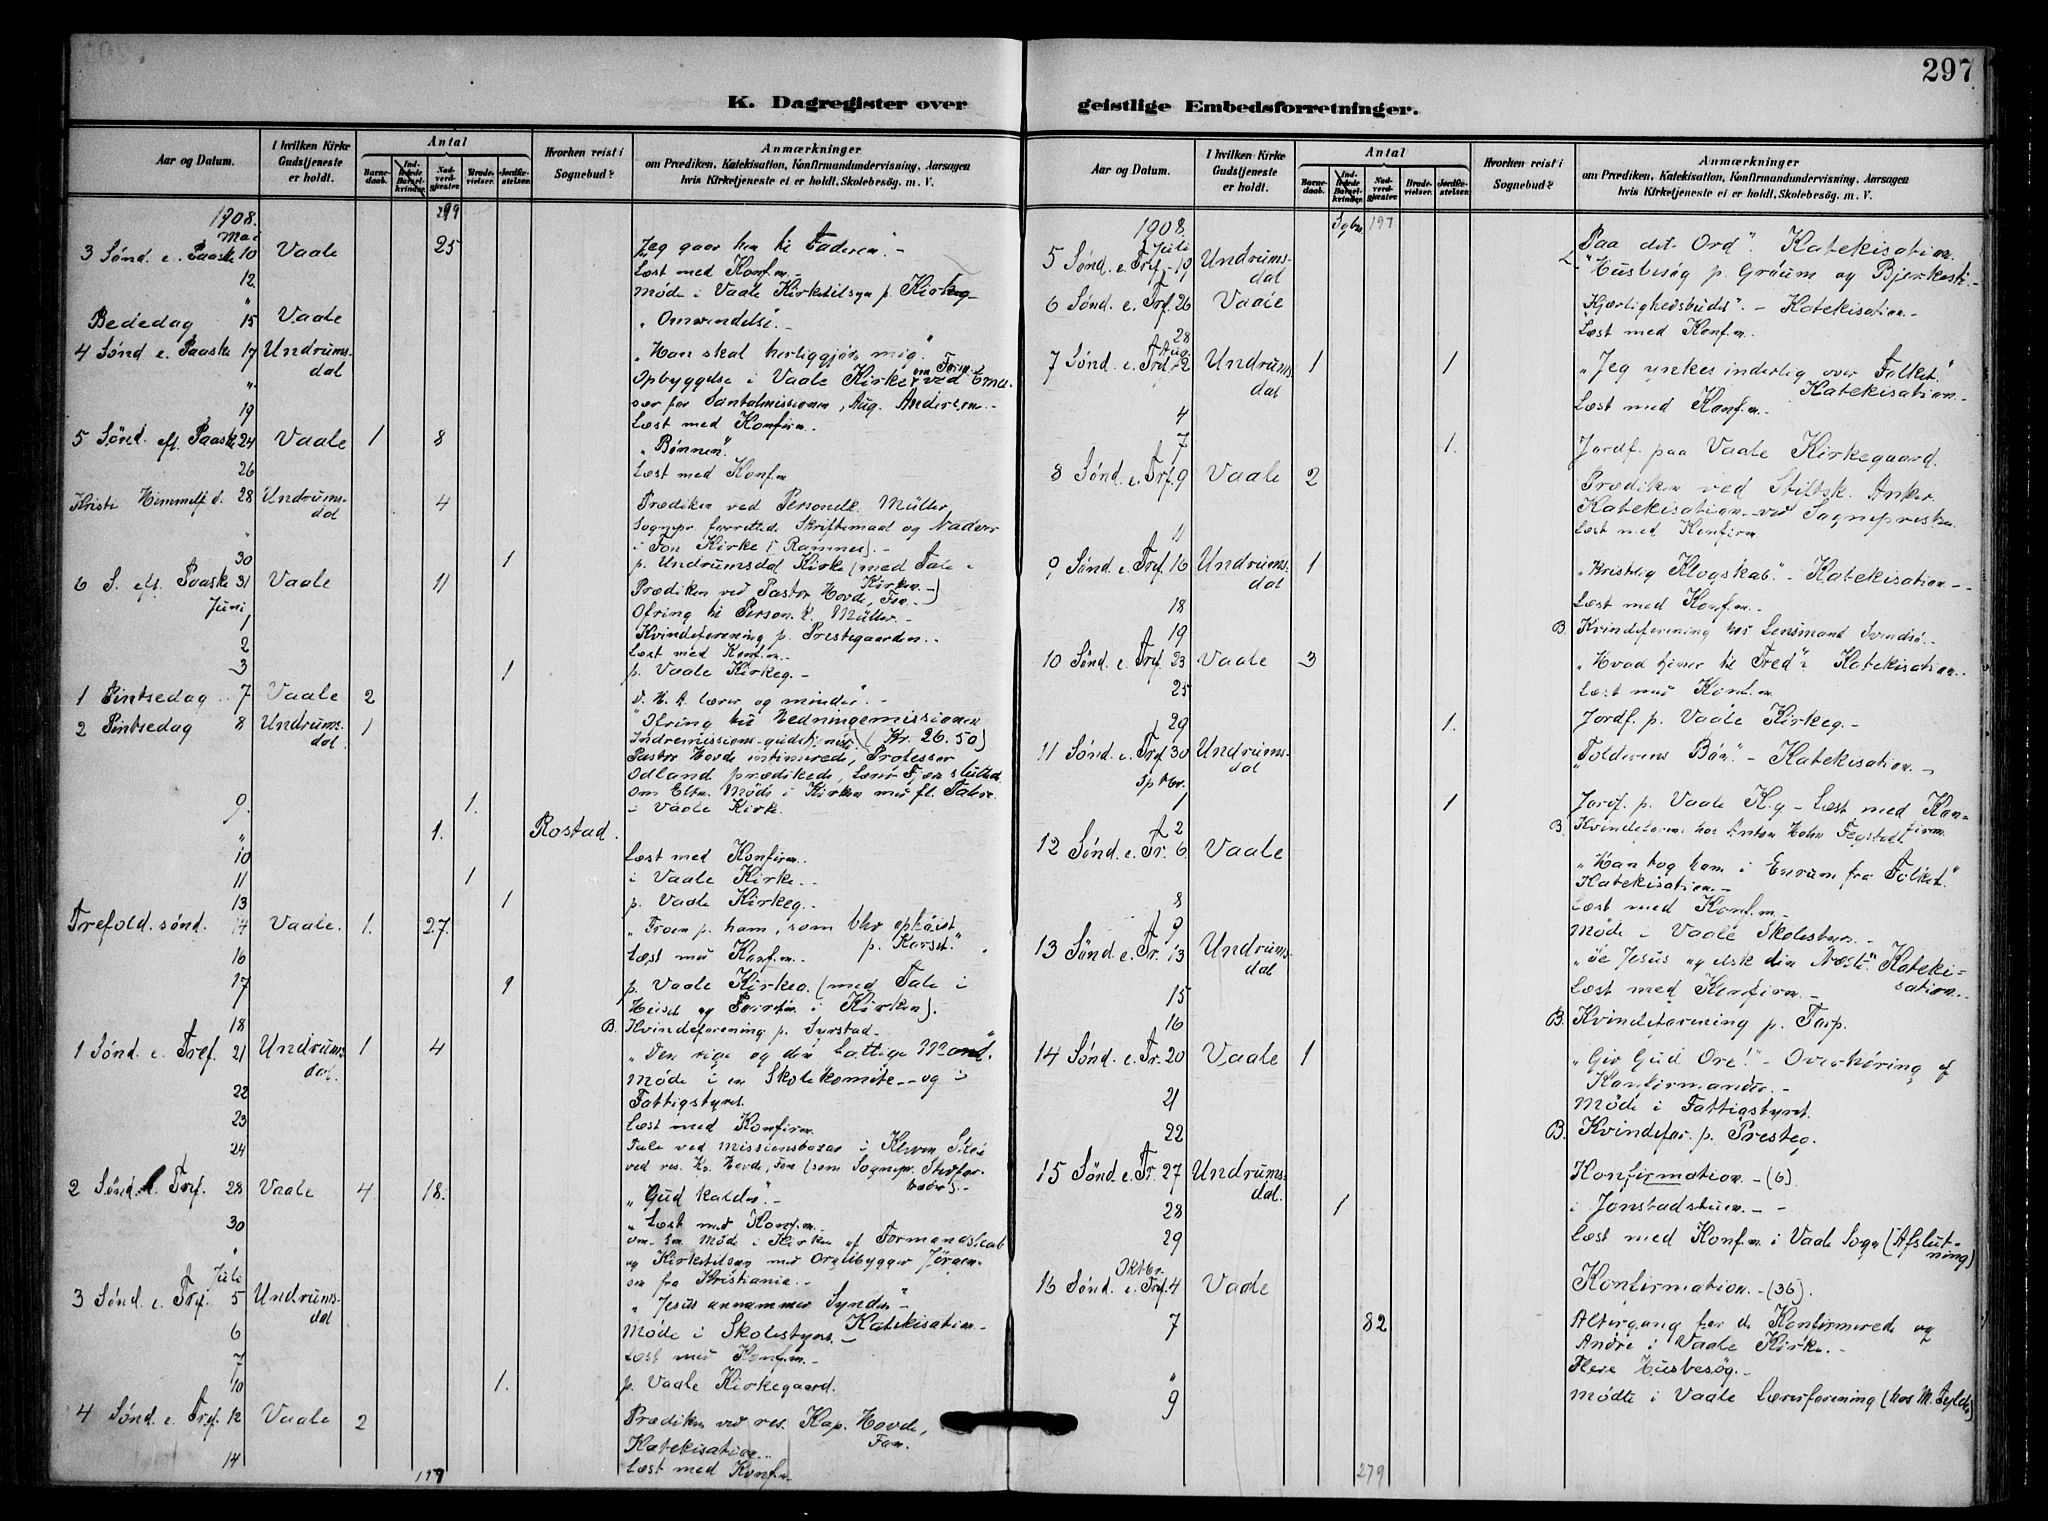 297
K. Dagregister over
geistlige Embedsforretninger.
Aar og Datum.
I hvilken Kirke Gudstjeneste er holdt.
Antal
Barnedaab.
Indledede Barselkvinder.
Nadverdgjæster.
Brudevielser.
Jordfæstelser.
Hvorhen reist i Sognebud?
Anmærkninger
om Prædiken, Katekisation, Konfirmandundervisning, Aarsagen
hvis Kirketjeneste ei er holdt, Skolebesøg. m. V.
1908.
Mai
3 Sønd. e. Paaske 10 Vaale 25 Jeg gaar hen til Faderen". -
12. Læst med Konf.m. -
" Møde i Vaale Kirketilsyn p. Kirkeg.
Bededag 15 Vaale "Omvendelse". -
4 Sønd e. Paaske 17 Undrumsdal "Han skal herliggjøre mig."
" Opbyggelse i Vaale Kirke ved
for Santalmissionen, Aug. Andersen. -
19 Læst med Konfirm. -
5 Sønd. eft. Paaske 24 Vaale 1 8 "Bønnen".
26 Læst med Konf.m
Kristi Himmelf d. 28 Undrumsdal 4 Prædiken ved Personelk. Müller,
Sognepr. forrettede Skriftemaal og Nadver
i Fon Kirke (Ramnes). -
30 1 p. Undrumsdal Kirke (med Tale i Kirken. -)
6 S. eft. Paaske 31 Vaale 11 Prædiken ved Pastor Hovde, Fon. -
Juni Ofring til Person. k. Müller. -
1 Kvindeforening p. Prestegaarden. -
2 Læst med Konf.m. -
3 1 p. Vaale Kirkeg. -
1 Pintsedag 7 Vaale 2 D. H. A. lærer og minder". -
2 Pintsedag 8 Undrumsdal. 1 "Ofring til Hedningemissionen
Indremissions-gudstjeneste) (Kr. 26.50)
Pastor Hovde intimerede, Professor
Odland prædikede, sluttede
Om Eftm. Møde i Kirken med fl. Talere.
9. 1. - i Vaale Kirke.
" 1. Rostad.
10 Læst med Konfirm. -
11 1 i Vaale Kirke. -
13 1 p. Vaale Kirkeg. -
Trefold. sønd. 14 Vaale. 1. 27. "Troen p. ham, som blev ophøiet
p. Korset."
16 Læst med Konf.m. -
17 1 p. Vaale Kirkeg. (med Tale i
Huset og i Kirken).
18 B. Kvindeforening p. Syrstad. -
1 Sønd. e. Tref. 21 Undrumsdal. 1 4 "Den rige og den fattige Mand."
22 Møde i en Skolekomite - og i
Fattigstyret.
23 Læst med Konfirm.
24 Tale ved Missionsbazar i
ved res. Kp. Hovde, Fon (som Sognepr. Stedfortræder). -
2 Sønd. e. Tref. 28 Vaale 4 18. "Gud kalder". -
30 "Læst med Konf.m. -
" Om Em Møde i Kirken af Formandskab
og Kirketilsyn med Orgelbygger Jørgensen fra Kristiania. -
Juli
3 Sønd e. Tref. 5 Undrumsdal "Jesus annammer Syndere" -
Katekisation. -
6 Møde i Skolestyret. -
7 Læst med Konf.m. -
10 1. p. Vaale Kirkegaard.
4 Sønd. e Tref. 12 Vaale 2 Prædiken ved res. Kap. Hovde, Fon.
Katekisation. -
14 Læst med Konf.m.
197
Aar og Datum.
I hvilken Kirke Gudstjeneste er holdt.
Antal
Barnedaab.
Indledede Barselkvinder.
Nadverdgjæster.
Brudevielser.
Jordfæstelser.
Hvorhen reist i Sognebud?
Anmærkninger
om Prædiken, Katekisation, Konfirmandundervisning, Aarsagen
hvis Kirketjeneste ei er holdt, Skolebesøg. m. V.
1908. 197
Juli
5 Sønd. e. Tref. 19 Undrumsdal "Paa dit Ord". Katekisation.
Husbesøg p. Graum og
6 Sønd. e. Tref. 26 Vaale Kjærlighedsbudet". - Katekisation. -
28 Læst med Konf.m.
Aug.
7 Sønd e. Tref. 2 Undrumsdal 1 1 "Jeg ynkes inderlig over Folket."
Katekisation. -
4 Læst med Konf.m. -
7 1. Jordf. paa Vaale Kirkegaard.
8 Sønd. e. Tref. 9 Vaale 2 Prædiken ved Stiftsk. Anker.
Katekisation ved Sognepresten.
11 Læst med Konfirm
9 Sønd. e. Tref. 16 Undrumsdal 1 "Kristelig Klogskab." - Katekisation. -
18 Læst med Konf.m. -
19 B. Kvindeforening hos Lensmand Svendsen. -
10 Sønd. e. Tref. 23 Vaale 3 "Hvad tjener til Fred"? Katekisation. -
25 Læst med Konf.m. -
29 1. Jordf. p. Vaale Kirkeg. -
11 Sønd. e. Tref 30 Undrumsdal "Tolderens Bøn". - Katekisation. -
Sptbr.
1 1 Jordf. p. Vaale K.g - Læst med Konfirm.
2 B. Kvindeform. hos Anton Holm
12 Sønd. e. Tr. 6 Vaale "Han tog ham i Enrum fra Folket."
Katekisation. -
8 Læst med Konf.m. -
9 Møde i Vaale Skolestyre. -
13 Sønd e. Tr. 13 Undrumsdal Jesus og elsk din Næste." Katekisation. -
15 Læst med Konfirm. -
16 B. Kvindeforening p. Tarp.
14 Sønd e. Tr. 20 Vaale 1 "Giv Gud Ære!" - Overhøring af
Konfirmander. -
21 Møde i Fattigstyret.
22 B. Kvindefor. p. Presteg.
15 Sønd e. Tr. 27 Undrumsdal. Konfirmation. - (6).
28 1 i Jonstadstuen. - -
29 Læst med Konf.m. i Vaale Sogn (Afslutning)
Oktbr.
16 Sønd. e. Tref 4 Vaale Konfirmation. - (36).
7 82 Altergang for de Konfirmerede og
Andre i Vaale Kirke. -
" Flere Husbesøg. -
9 Møde i Vaale Lærerforening (hos
279